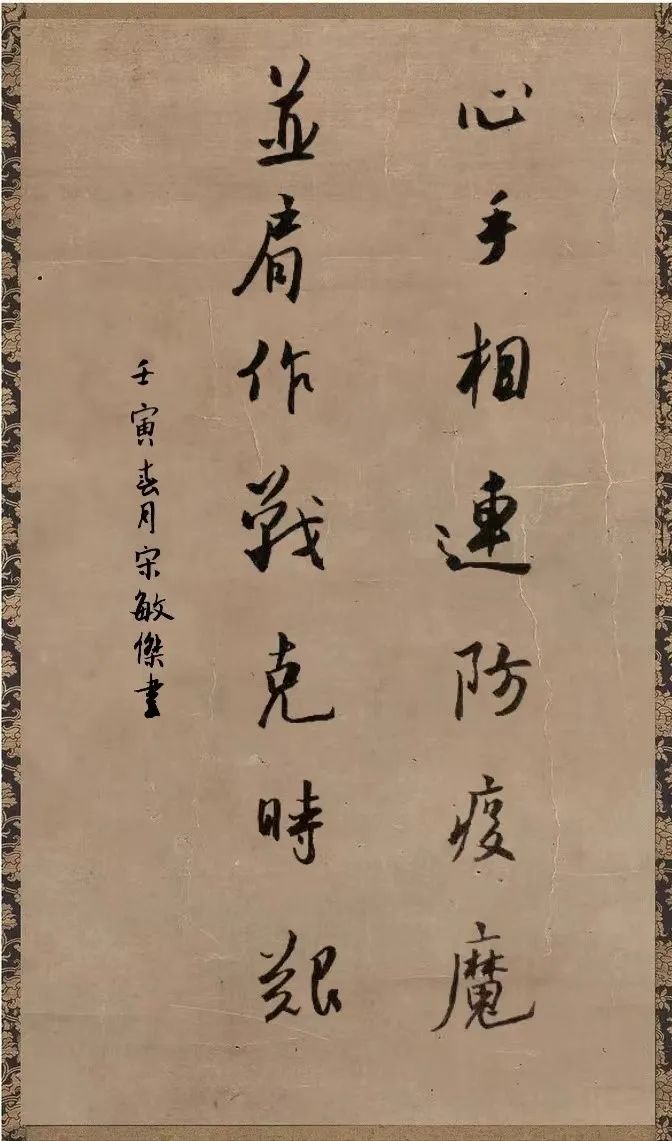 心手相連防疫魔
並肩作戰克時艱
壬寅春月宋敏傑書